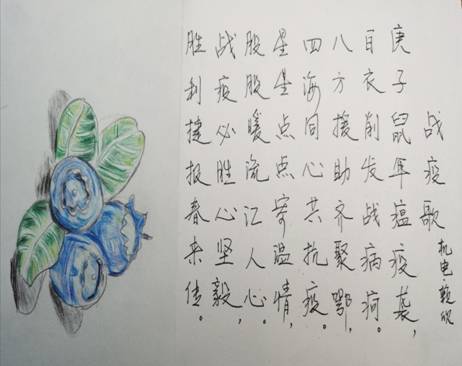 战疫歌
机电
庚子鼠年瘟疫袭，
百衣削发战病疴。
八方援助齐聚鄂，
四海同心共抗疫。
星星点点寄温情，
股股暖流江人心。
战疫必胜心坚毅，
胜利捷报春来传。